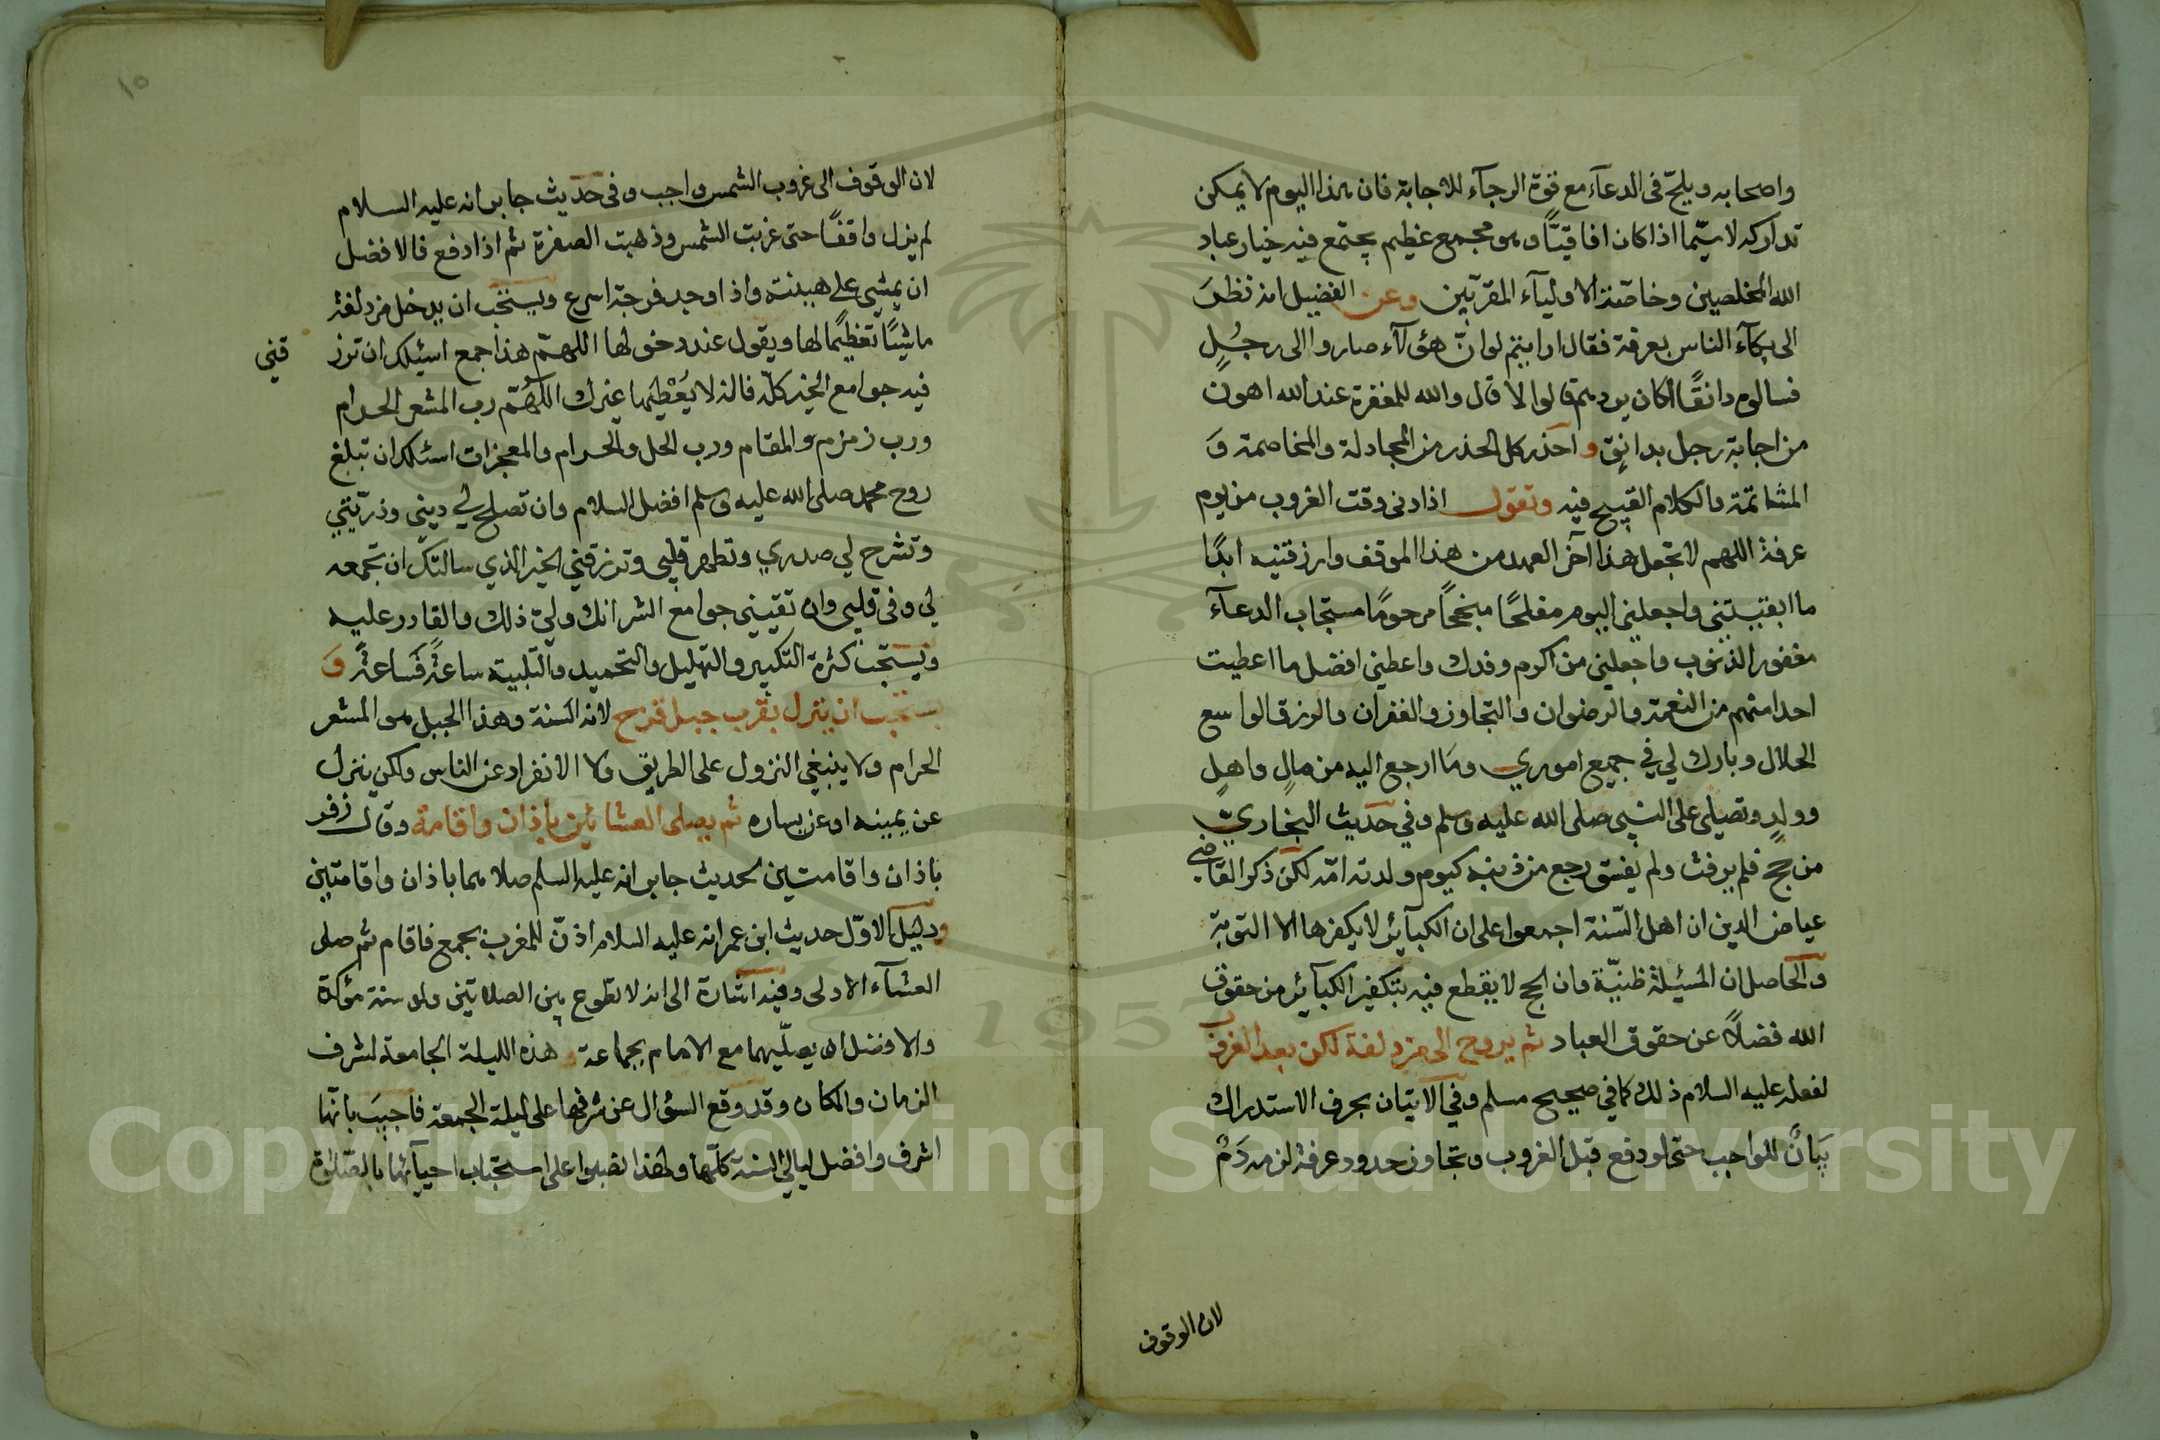 واصحابه ويلحّ فى الدعآء مع قوة الرجآء للاجابة فان هذا اليوم لا يمكن
تداركه لا سيّما اذا كان افاقيّاً وهو مجمع عظيم يجتمع فيه خيار عباد
الله المخلصين وخاصّة الاوليآء المقرّبين وعن الفضيل انه نظر
الى بكآء الناس بعرفة فقال ارايتم لو انّ هؤلآء صاروا الى رجُلٍ
فسالوه دانقًا اكان يردهم قالوا لا قال والله للمغفرة عند الله اهون
من اجابة رجل بدانِقٍ واحذر كل الحذر من المجادلة والمخاصمة وَ
المشاتمة والكلام القبيح فيه وتقول اذا دنى وقت الغروب من يوم
عرفة اللهم لا تجعل هذا آخر العهد من هذا الموقف وارزقنيه ابدًا
ما ابقيتنى واجعلنى اليوم مفلحًا منجحًا مرحومًا مستجاب الدعآء
مغفور الذنوب واجعلنى من اكرم وفدك واعطنى افضل ما اعطيت
احدا منهم من النعمة والرضوان والتجاوز والغفران والرزق الواسع
الحلال وبارك لي في جميع اموري ومَا ارجع اليه من مالٍ واهلٍ
وولدٍ وتصلى على النبى صلى الله عليه وسلم وفي حديث البخاريّ
من حجّ فلم يرفث ولم يفسق رجع من ذنبه كيوم ولدته امّه لكن ذكر القاضى
عياض الدين ان اهل السّنة اجمعوا على ان الكبآئر لا يكفرها الا التوبة
والحاصل ان المسئلة ظنيّة وان الحج لا يقطع فيه بتكفير الكبآئر من حقوق
الله فضلاً عن حقوق العباد ثم يروح الى مزدلفة لكن بعد الغروب
لفعله عليه السلام ذلك كما في صحيح مسلم وفي الاتيان بحرف الاستدراك
بَيانٌ للواجب حتى لو دفع قبل الغروب وتجاوز حدود عرفة لزمه دَمٌ
لان الوقوف
١٥
لان الوقوف الى غروب الشمس واجب وفى حديث جابر انه عليه السلام
لم يزل واقفًا حتى غربت الشمس وذهبت الصفرة ثم اذا دفع فالافضل
ان يمشى على هينته واذا وجد فرجة اسرع ويستحّب ان يدخل مزدلفة
ماشيًا تعظيمًا لها ويقول عند دخولها اللهمّ هذا جمع اسئلك ان ترز
قنى
فيه جوامع الخير كلّه فانه لا يُعْطيها غيرك اللهُمّ رب المشعر الحرام
ورب زمزم والمقام ورب الحل والحرام والمعجزات اسئلك ان تبلغ
روح محمد صلى الله عليه وسلم افضل السلام وان تصلح لي ديني وذرّيتي
وتشرح لي صدري وتطهر قلبى وترزقني الخير الذي سالتك ان تجمعه
لي وفى قلبى وان تقينى جوامع الشر انك وليّ ذلك والقادر عليه
ويستحّب كثرة التكبير والتهليل والتحميد والتلبية ساعةً فَساعةً وَ
يستحّب ان ينزل بقرب جبل قزح لانه السنة وهذا الجبل هو المشعر
الحرام ولا ينبغي النزول على الطريق ولا الانفراد عن الناس ولكن ينزل
عن يمينه او عن يساره ثم يصلى العشائين باذان واقامة وقال زفر
باذان واقامتين لحديث جابر انه عليه السلم صلاهما باذان واقامتين
ودليل الاوّل حديث ابن عمر انه عليه السلام اذنّ للمغرب بجمع فاقام ثم صلى
العشآء الاولى وفيه اشارة الى انه لا تطوع بين الصلاتين ولو سنة مؤكدة
والافضل ان يصلّيهما مع الامام بجماعة وهذه الليلة الجامعة لشرف
الزمان والمكان وقد وقع السؤال عن شرفها على ليلة الجمعة فاجيبَ بانّها
اشرف وافضل ليالي السنة كلّها ولهذا على استحباب احيآئها بالصّلوة
Copyright © King Saud University
1957